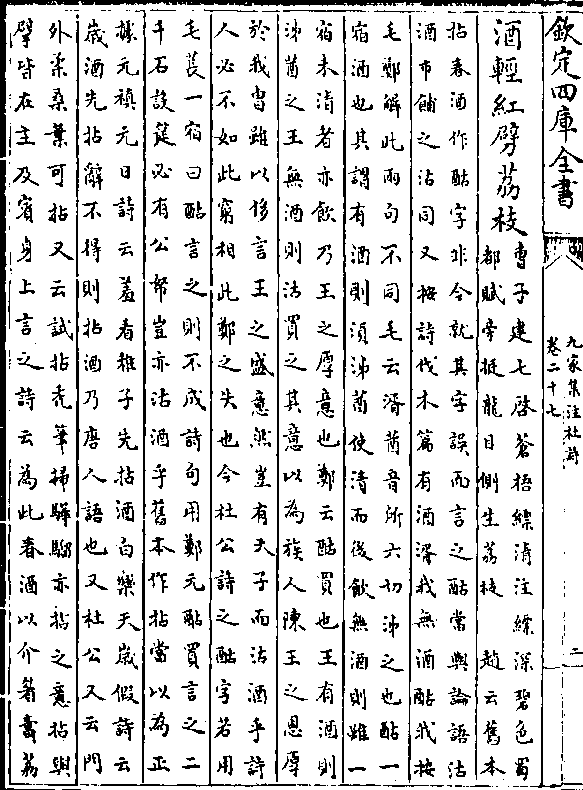 欽定四庫全書
九家集注杜詩
卷二十七
二
酒輕紅擘荔枝
曹子建七啓蒼梧縹清注縹深碧色蜀
都賦旁挺龍目側生荔枝 趙云舊本
拈春酒作酤字非今就其字誤而言之酤當與論語沽
酒市餔之沽同又按詩伐木篇有酒湑我無酒酤我按
毛鄭解此兩句不同毛云湑莤音所六切沛之也酤一
宿酒也其謂有酒則湏沛莤使清而後飲無酒則雖一
宿未清者亦飲乃王之厚意也鄭云酤買也王有酒則
沛莤之王無酒則沽買之其意以為族人陳王之恩厚
於我曾雖以侈言王之盛意然豈有天子而沽酒乎詩
人必不如此窮相此鄭之失也今杜公詩之酤字若用
毛萇一宿曰酤言之則不成詩句用鄭元酤買言之二
千石設筵必有公帑豈亦沽酒乎舊本作拈當以為正
樣元稹元日詩云羞看稚子先拈酒白樂天嵗假詩云
嵗酒先拈辭不得則拈酒乃唐人語也又杜公又云門
外柔桑葉可拈又云試拈秃筆掃驊騮亦拈之意拈與
擘皆在主及賓身上言之詩云為此春酒以介眉壽荔